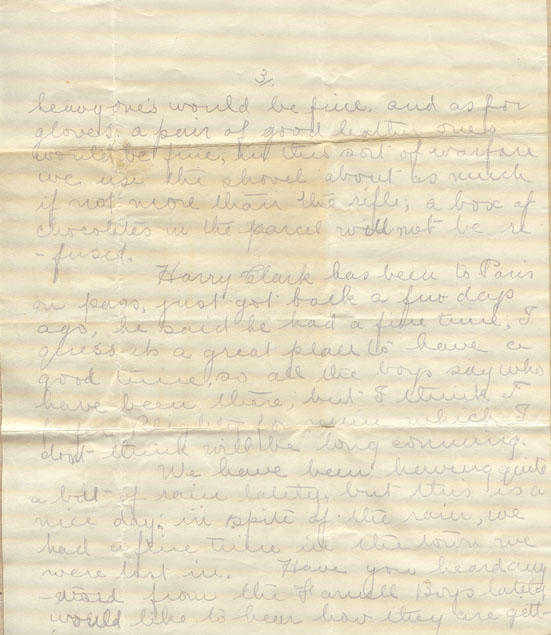 3.
heavy one's would be fine. and as for
gloves; a pair of good leather ones
would be fine, in this sort of warfare
we use the shovel about as much
if not more than the rifle; a box of
chocolates in the parcel will not be re
-fused.
Harry Clark has been to Paris
on pass, just got back a few days
ago, he said he had a fine time, I
guess its a great place to have a
good time, so all the boys say who
have been there, but I think I
Blighty for mine which I
dont think will be long comming.
We have been having quite
a bit of rain lately, but this is a
nice day; in spite of the rain, we
had a fine time in the town we
were last in. Have you heard any
-word from the Farnell Boys lately
would like to hear how they are gett-